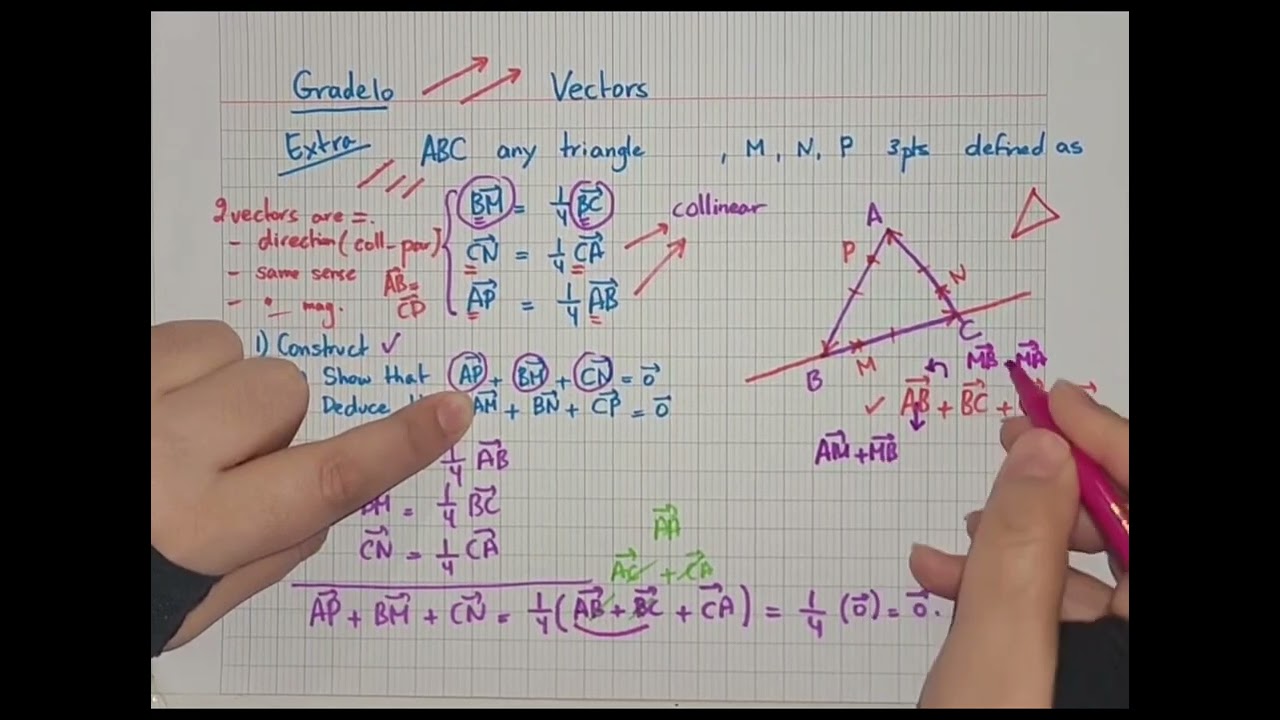 Grade10 Vectors
Extra ABC any triangle , M, N, P 3pts defined as
2 vectors are =.
- direction (coll-par)
- same sense
- mag.
AB⃗ =
CP⃗
BM⃗ = 1/4 BC⃗
CN⃗ = 1/4 CA⃗
AP⃗ = 1/4 AB⃗
collinear
A
P
N
C
M
B
1) Construct ✓
Show that AP⃗ + BM⃗ + CN⃗ = 0⃗
Deduce AM⃗ + BN⃗ + CP⃗ = 0⃗
MB⃗ MA⃗
✓ AB⃗ + BC⃗ +
AM⃗ + MB⃗
1/4 AB⃗
BM = 1/4 BC⃗
CN⃗ = 1/4 CA⃗
AA⃗
AC⃗ + CA⃗
AP⃗ + BM⃗ + CN⃗ = 1/4 (AB⃗ + BC⃗ + CA⃗) = 1/4 (0⃗) = 0⃗.